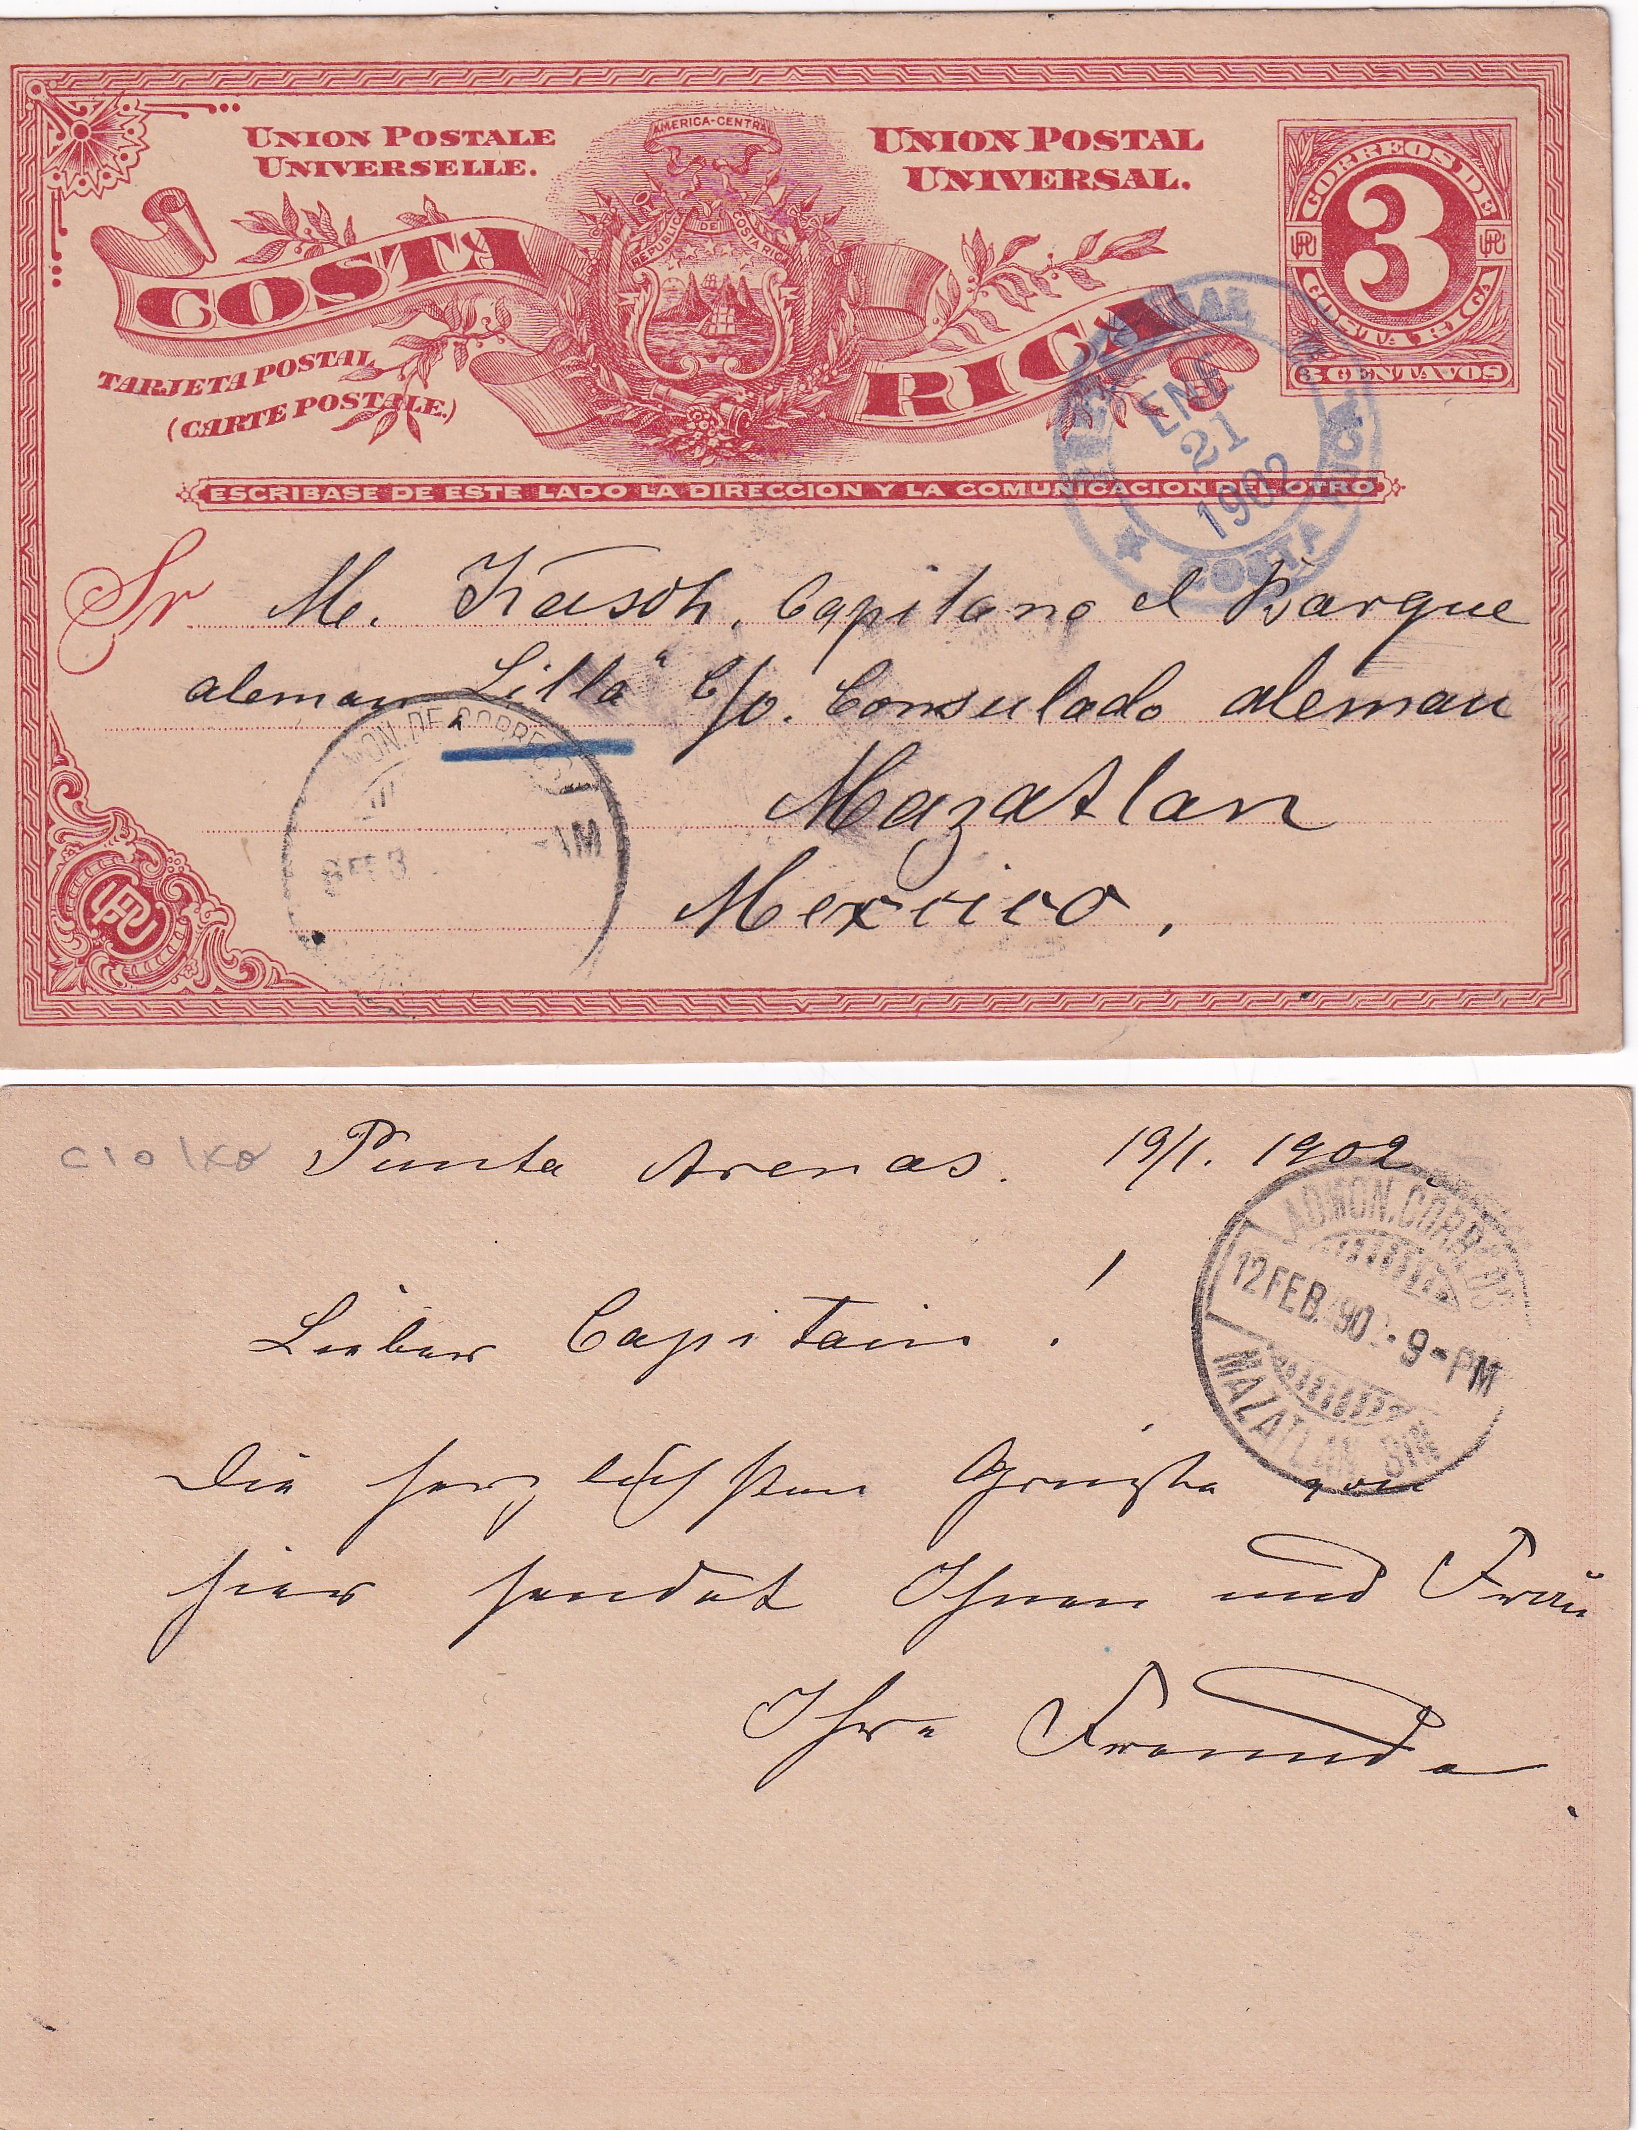 UNION POSTALE
UNIVERSELLE.
AMERICA-CENTRAL
UNION POSTAL
UNIVERSAL.
CORREOS DE
3
UPU UPU
COSTA RICA
3 CENTAVOS
REPUBLICA DE COSTA RICA
COSTA RICA
TARJETA POSTAL
(CARTE POSTALE.)
ENE
21
1902
COSTA RICA
ESCRIBASE DE ESTE LADO LA DIRECCION Y LA COMUNICACION DEL OTRO
Sr M. Kasch, Capitano el Barque
aleman „Lilla“ C/o. Consulado aleman
Mazatlan
Mexcico,
MON. DE CORREOS
3 AM
UPU
Punta Arenas. 19/1. 1902.
ADMON. CORREOS
12 FEB. 1902 - 9 - PM
MAZATLAN SIN
Lieber Capitain!
Die herzlichsten Grüsse von
hier sendet Ihnen und Frau
Ihre Freunde